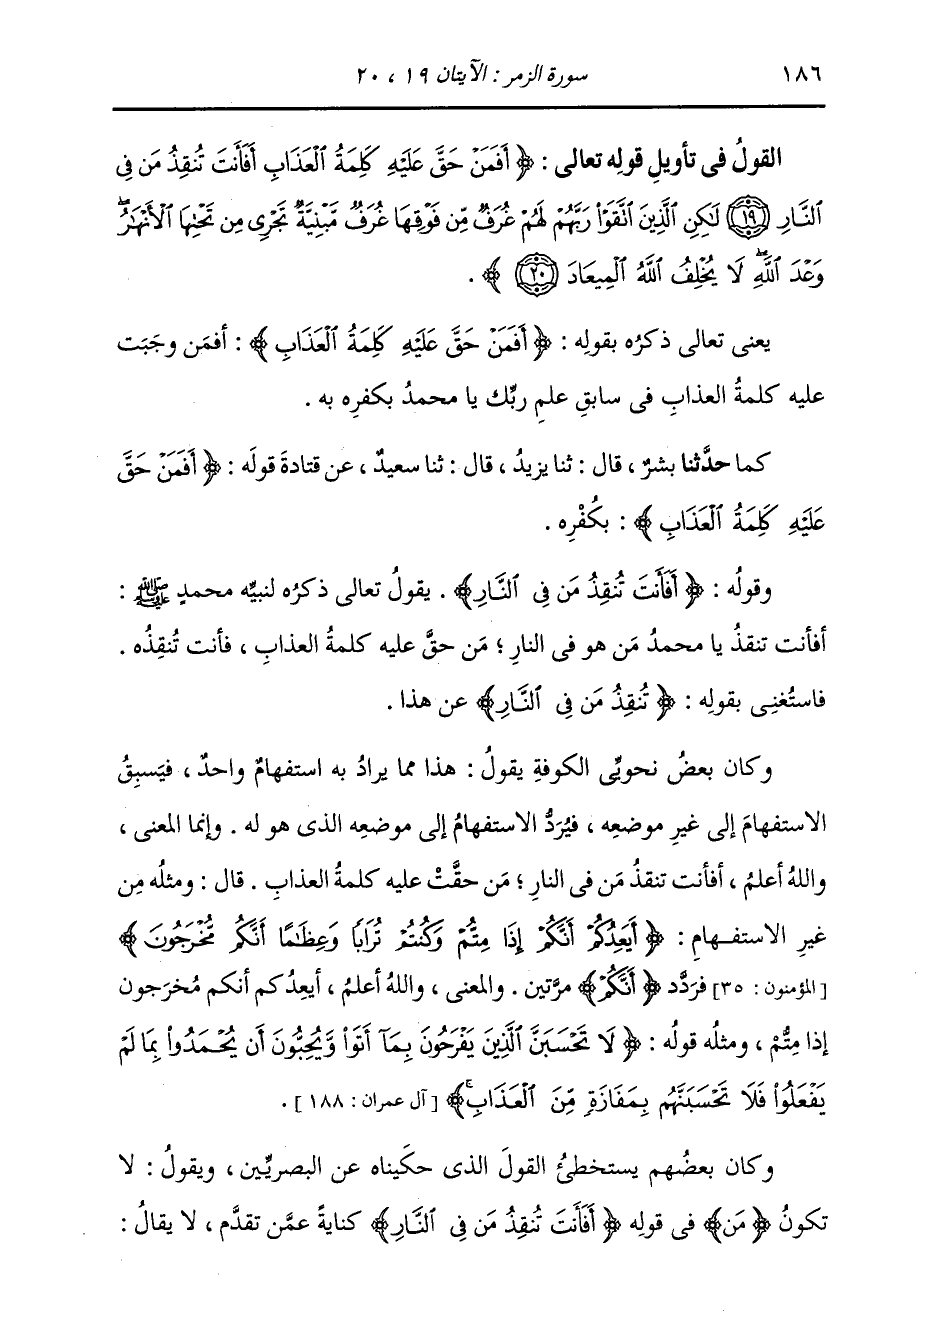 ١٨٦ سورة الزمر : الآيتان ١٩ ، ٢٠
القولُ فى تأويلِ قولِه تعالى : ﴿ أَفَمَنْ حَقَّ عَلَيْهِ كَلِمَةُ ٱلْعَذَابِ أَفَأَنتَ تُنقِذُ مَن فِى
ٱلنَّارِ ١٩ لَٰكِنِ ٱلَّذِينَ ٱتَّقَوْا۟ رَبَّهُمْ لَهُمْ غُرَفٌ مِّن فَوْقِهَا غُرَفٌ مَّبْنِيَّةٌ تَجْرِى مِن تَحْتِهَا ٱلْأَنْهَٰرُ ۖ
وَعْدَ ٱللَّهِ ۖ لَا يُخْلِفُ ٱللَّهُ ٱلْمِيعَادَ ٢٠ ﴾ .
يعنى تعالى ذكرُه بقولِه : ﴿ أَفَمَنْ حَقَّ عَلَيْهِ كَلِمَةُ ٱلْعَذَابِ ﴾ : أفمَن وجَبَت
عليه كلمةُ العذابِ فى سابقِ علمِ ربِّك يا محمدُ بكفرِه به .
كما حدَّثنا بشرٌ ، قال : ثنا يزيدُ ، قال : ثنا سعيدٌ ، عن قتادةَ قولَه : ﴿ أَفَمَنْ حَقَّ
عَلَيْهِ كَلِمَةُ ٱلْعَذَابِ ﴾ : بكُفْرِه .
وقولُه : ﴿ أَفَأَنتَ تُنقِذُ مَن فِى ٱلنَّارِ ﴾ . يقولُ تعالى ذكرُه لنبيِّه محمدٍ ﷺ :
أفأنت تنقذُ يا محمدُ مَن هو فى النارِ ؛ مَن حقَّ عليه كلمةُ العذابِ ، فأنت تُنقِذُه .
فاستُغنِى بقولِه : ﴿ تُنقِذُ مَن فِى ٱلنَّارِ ﴾ عن هذا .
وكان بعضُ نحويِّى الكوفةِ يقولُ : هذا مما يرادُ به استفهامٌ واحدٌ ، فيَسبِقُ
الاستفهامَ إلى غيرِ موضعِه ، فيُرَدُّ الاستفهامُ إلى موضعِه الذى هو له . وإنما المعنى ،
واللهُ أعلمُ ، أفأنت تنقذُ مَن فى النارِ ؛ مَن حقَّتْ عليه كلمةُ العذابِ . قال : ومثلُه مِن
غيرِ الاستفـهامِ : ﴿ أَيَعِدُكُمْ أَنَّكُمْ إِذَا مِتُّمْ وَكُنتُمْ تُرَابًا وَعِظَٰمًا أَنَّكُم مُّخْرَجُونَ ﴾
[ المؤمنون : ٣٥ ] فرَدَّد ﴿ أَنَّكُمْ ﴾ مرَّتين . والمعنى ، واللهُ أعلمُ ، أيعِدُكم أنكم مُخرَجون
إذا مِتُّمْ ، ومثلُه قولُه : ﴿ لَا تَحْسَبَنَّ ٱلَّذِينَ يَفْرَحُونَ بِمَآ أَتَوا۟ وَّيُحِبُّونَ أَن يُحْمَدُوا۟ بِمَا لَمْ
يَفْعَلُوا۟ فَلَا تَحْسَبَنَّهُم بِمَفَازَةٍ مِّنَ ٱلْعَذَابِ ۚ ﴾ [ آل عمران : ١٨٨ ] .
وكان بعضُهم يستخطئُ القولَ الذى حكَيناه عن البصريِّين ، ويقولُ : لا
تكونُ ﴿ مَن ﴾ فى قولِه ﴿ أَفَأَنتَ تُنقِذُ مَن فِى ٱلنَّارِ ﴾ كنايةً عمَّن تقدَّم ، لا يقالُ :